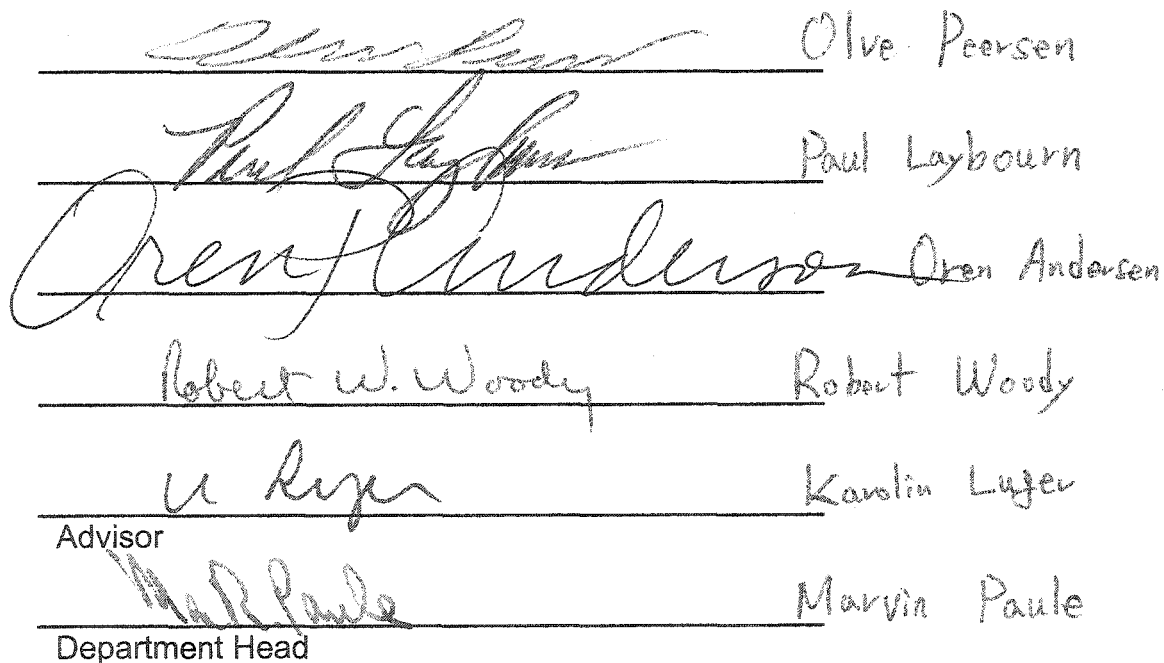 Olve Peersen
Paul Laybourn
Oren P Anderson Oren Andersen
Robert W. Woody Robert Woody
Karolin Luger
Advisor
Paule Marvin Paule
Department Head